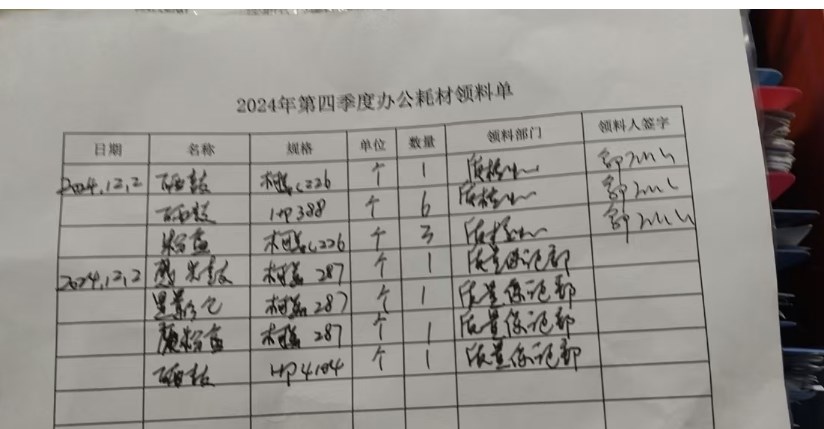 2024年第四季度办公耗材领料单
日期 名称 规格 单位 数量 领料部门 领料人签字
2024.12.2 硒鼓 柯美C226 个 1
硒鼓 HP388 个 6
粉盒 柯美C226 个 3
2024.12.2 感光鼓 柯美287 个 1 质量保记部
柯美287 个 1 质量保记部
粉盒 柯美287 个 1 质量保记部
硒鼓 HP4104 个 1 质量保记部